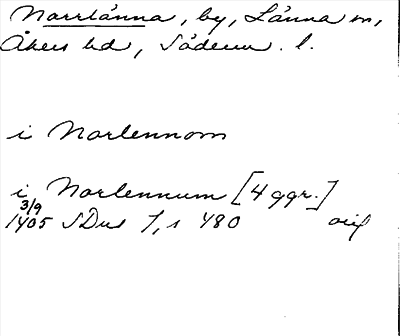 Norrlänna, by, Länna sn,
Åkers hd, Söderm. l.
i Norlennom
i Norlennum [4 ggr.]
3/9
1405 SDns 1, s 480 orig